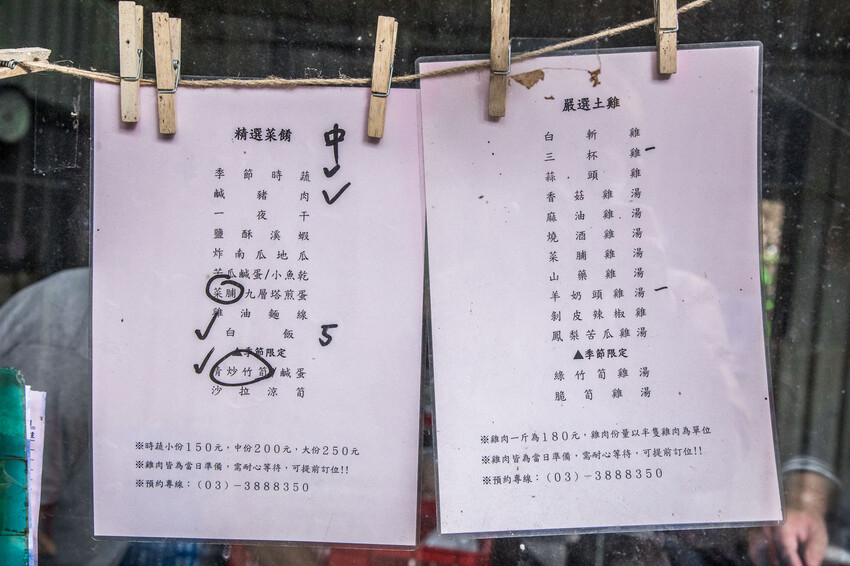 精選菜餚
中
季節時蔬
鹹豬肉
一夜干
鹽酥溪蝦
炸南瓜地瓜
苦瓜鹹蛋/小魚乾
菜脯九層塔煎蛋
雞油麵線
白飯 5
▲季節限定
清炒竹筍/鹹蛋
沙拉涼筍
※時蔬小份150元，中份200元，大份250元
※雞肉皆為當日準備，需耐心等待，可提前訂位!!
※預約專線：(03)-3888350
嚴選土雞
白斬雞
三杯雞
蒜頭雞
香菇雞湯
麻油雞湯
燒酒雞湯
菜脯雞湯
山藥雞湯
羊奶頭雞湯
剝皮辣椒雞
鳳梨苦瓜雞湯
▲季節限定
綠竹筍雞湯
脆筍雞湯
※雞肉一斤為180元，雞肉份量以半隻雞肉為單位
※雞肉皆為當日準備，需耐心等待，可提前訂位!!
※預約專線：(03)-3888350